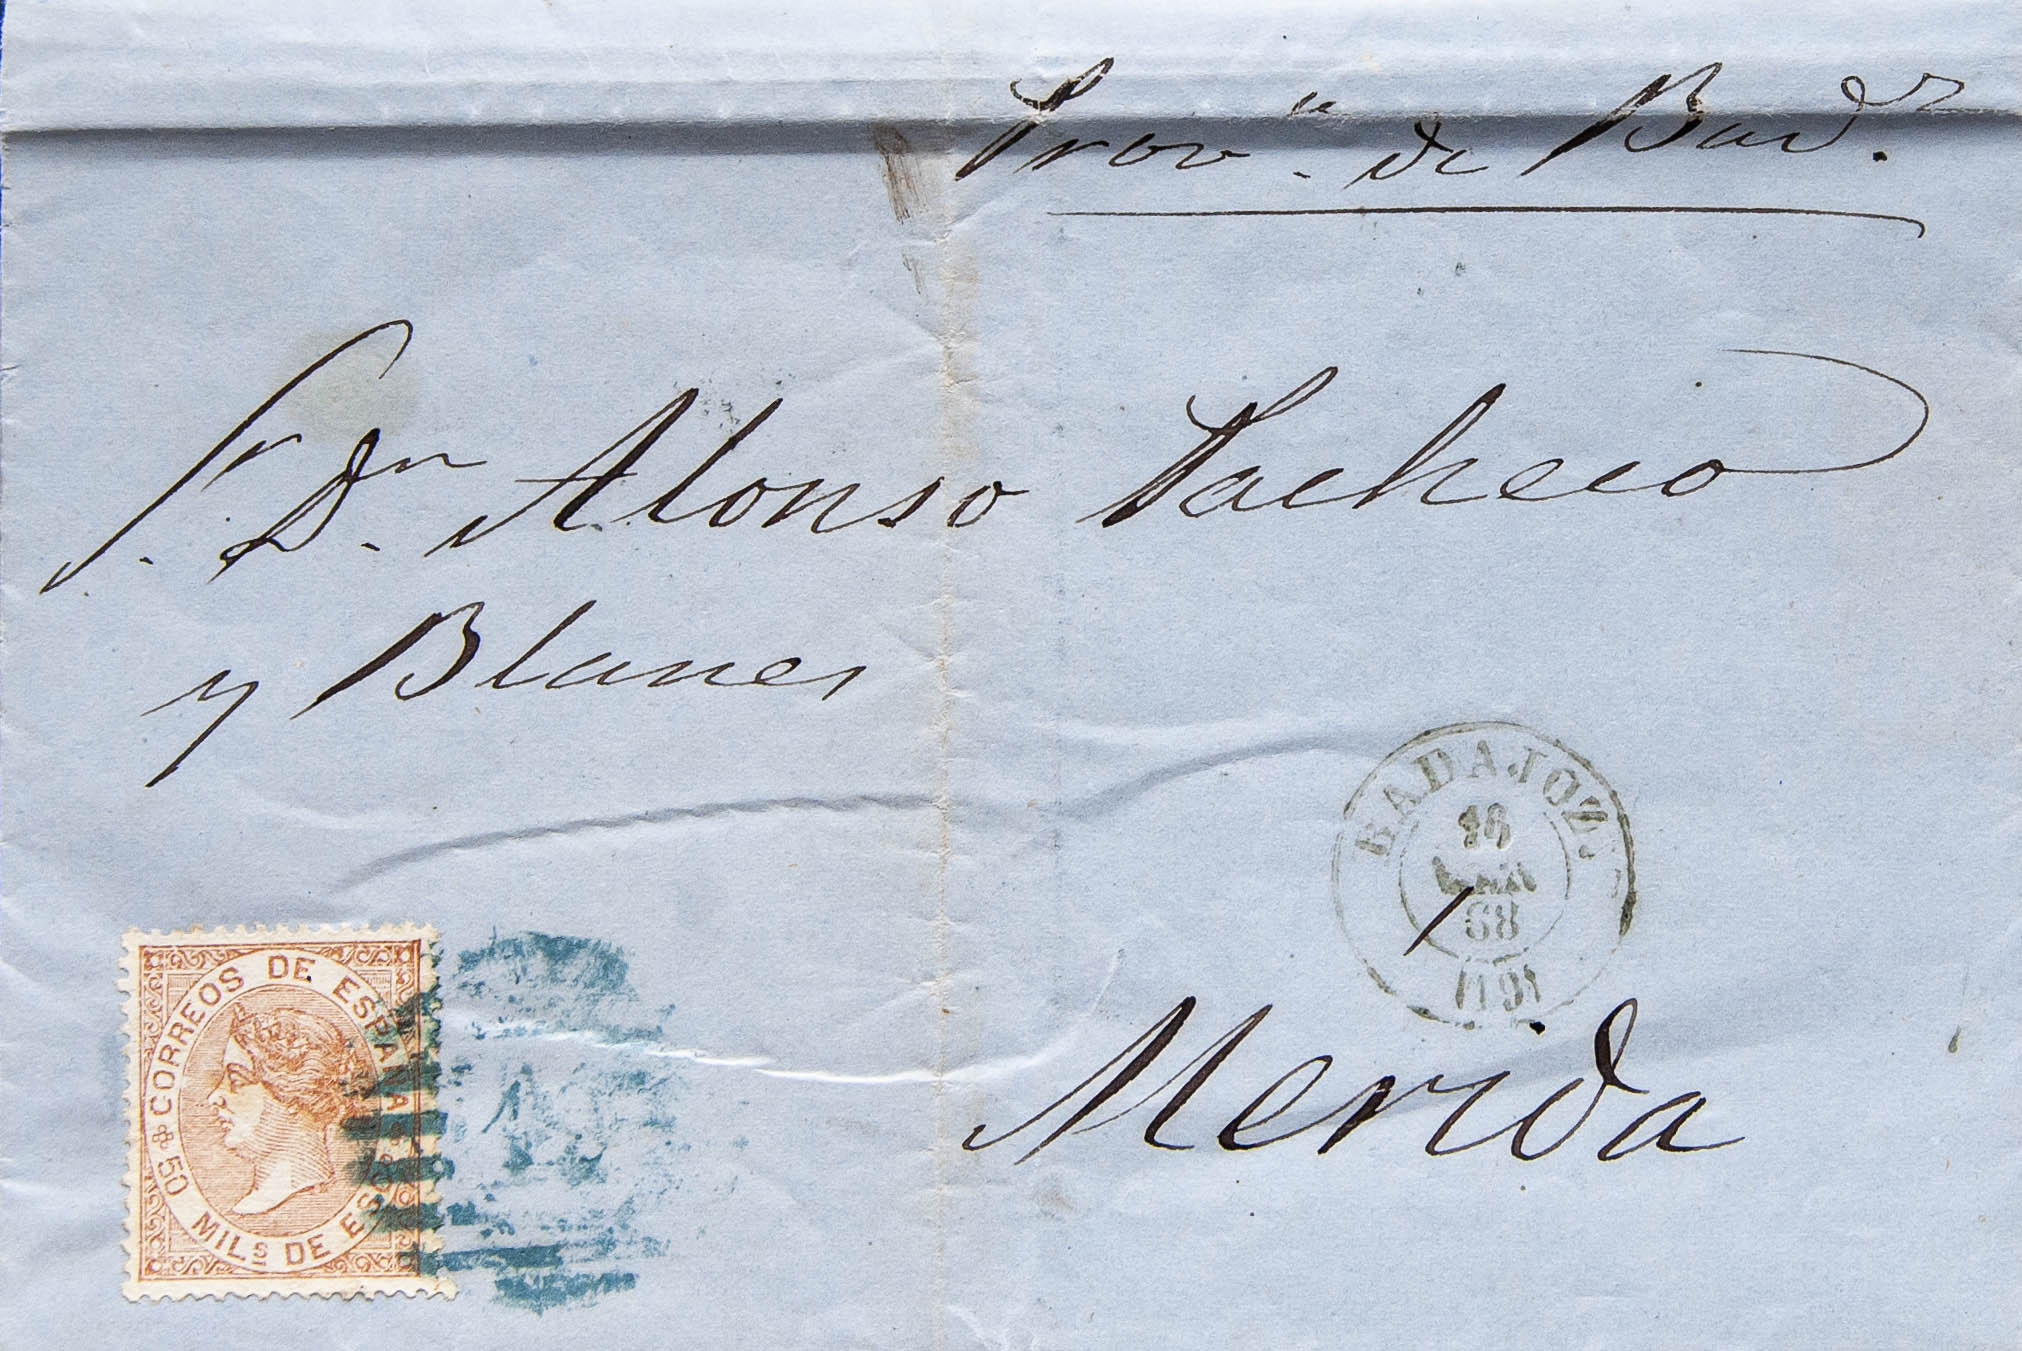 Prov.ª de Bad.z
S.r D.n Alonso Pacheco
y Blanes
BADAJOZ.
68
(19)
Merida
CORREOS DE ESPAÑA
50 MILs DE ESCO